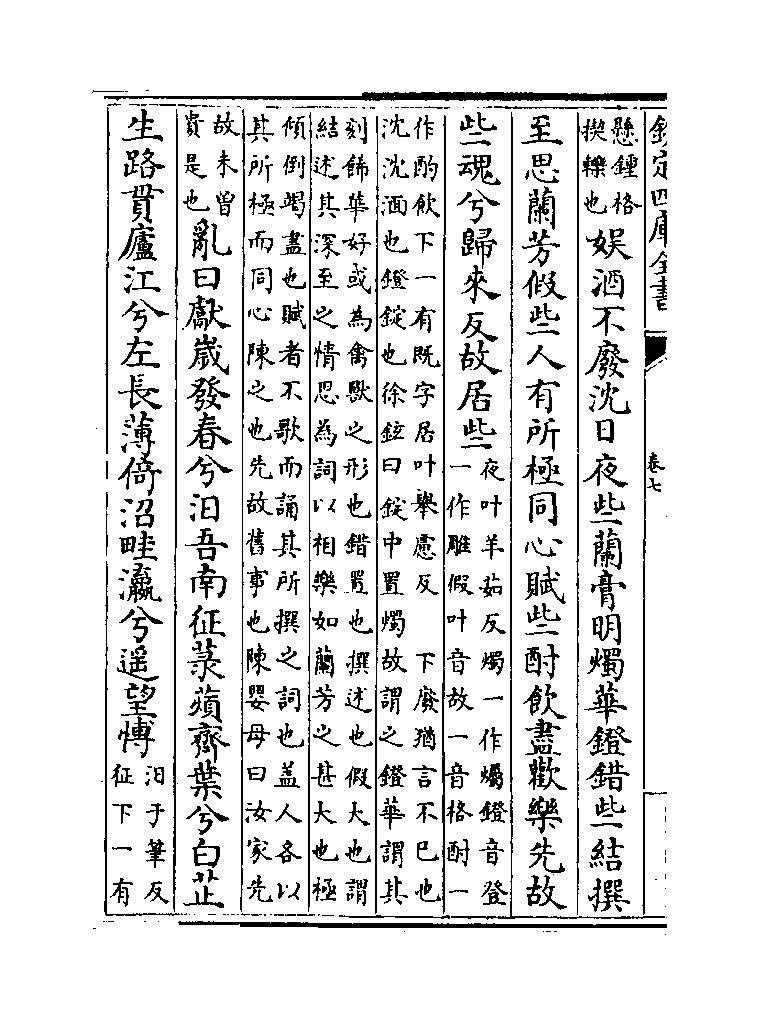 欽定四庫全書
卷七
懸鍾格
揳轢也
娱酒不廢沈日夜些蘭膏明燭華鐙錯些結撰
至思蘭芳假些人有所極同心賦些酎飲盡歡樂先故
些魂兮歸來反故居些
夜叶羊茹反燭一作爥鐙音登
一作雕假叶音故一音格酎一
作酌飲下一有既字居叶舉慮反　下廢猶言不已也
沈沈湎也鐙錠也徐鉉曰錠中置燭故謂之鐙華謂其
刻飾華好或為禽獸之形也錯置也撰述也假大也謂
結述其深至之情思為詞以相樂如蘭芳之甚大也極
傾倒竭盡也賦者不歌而誦其所撰之詞也盖人各以
其所極而同心陳之也先故舊事也陳嬰母曰汝家先
故未曾
貴是也
亂曰獻嵗發春兮汨吾南征菉蘋齊葉兮白芷
生路貫廬江兮左長薄倚沼畦瀛兮遥望博
汨于筆反
征下一有